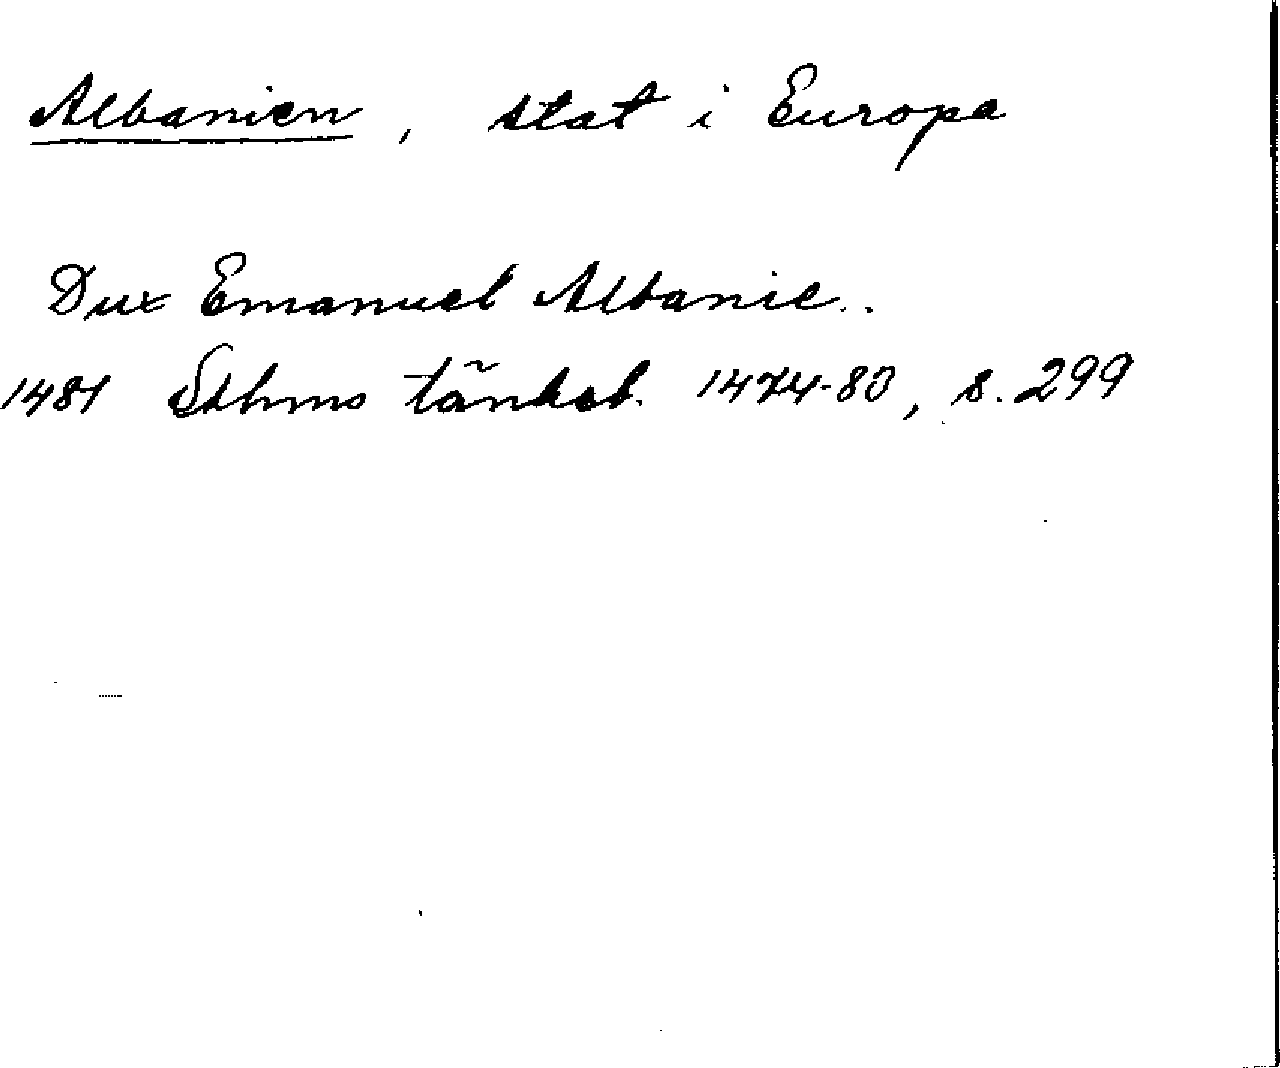 Albanien, stat i Europa
Dux Emanuel Albanie..
1481 Sthms tänkeb. 1474-80, s. 299